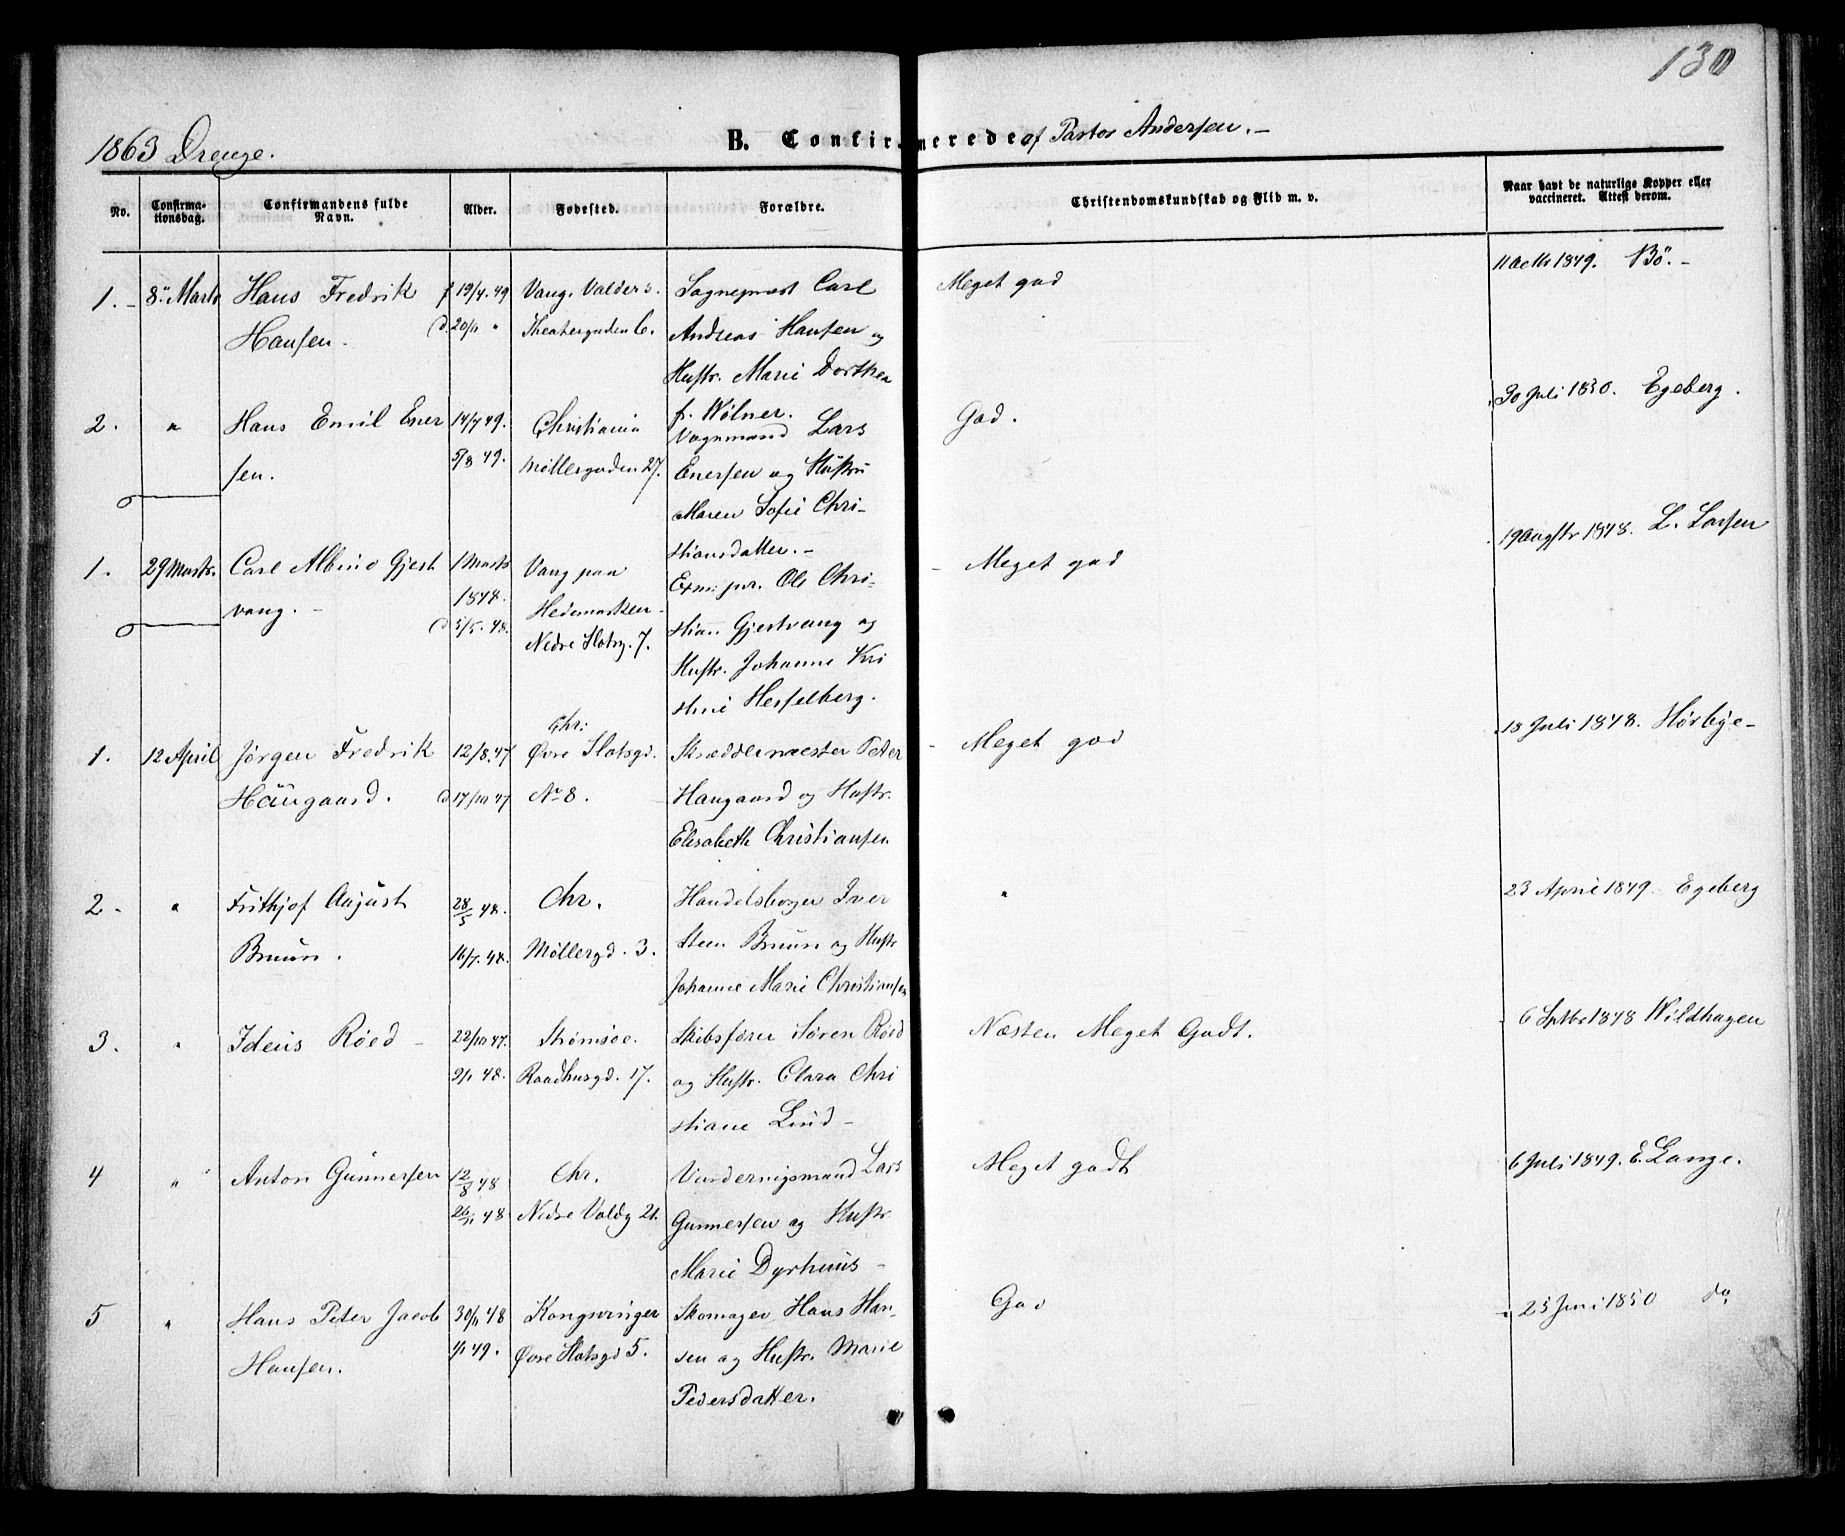 130
1863 Drenge.
B. Confirmerede af Pastor Andersen. –
No.
Confirma-
tionsdag.
Confirmandens fulde
Navn.
Alder.
Fødested.
Forældre.
Christendomskundskab og Flid m. v.
Naar havt de naturlige Kopper eller
vaccineret. Attest derom.
1. – 8de Marts Hans Fredrik f 19/4.49 Vang. Valders. Sognepræst Carl Meget god 11 Octb 1849. Bö. –
Hansen. d. 20/11 " Theatergaden 6. Andreas Hansen og
Hustr. Marie Dorthea
f. Wölner.
2. " Hans Emil Ener 14/7 49. Christiania Vognmand Lars God. 30 Juli 1850. Egeberg.
sen. 5/8 49. Møllergaden 27. Enersen og Hustru
Maren Sofie Chri-
stiansdatter. –
1. 29 Marts. Carl Albino Gjest 1 Marts Vang paa Exm: jur. Ole Chri- Meget god 19 Augstr 1848. L. Larsen
vang. – 1848. Hedemarken. stian Gjestvang og
d. 5/5. 48. Nedre Slotsg. 7. Hustr. Johanne Kri
stine Hesselberg.
1. 12 April Jørgen Fredrik 12/8.47 Chr: Øvre Slotsgd. Skræddermester Peter Meget god 18 Juli 1848. Hørbye –
Haugaard. d. 17/10 47 No 8. Haugaard og Hustr.
Elisabeth Christiansen
2. " Frithjof August 28/5 48. Chr. Handelsborger Iver " 23 April 1849. Egeberg
Bruun. 16/7. 48. Møllergd. 3. Steen Bruun og Hustr
Johanne Marie Christiansen
3. " Ideus Røed – 22/10 47. Strømsøe. Skibsfører Søren Røed Næsten Meget Godt. 6 Sptbr 1848 Wildhagen
9/1 48. Raadhusgd. 17. og Hustr. Clara Chri
stiane Lind –
4 " Anton Gunnersen 12/8 48 Chr. Vurderingsmand Lars Meget godt 6 Juli 1849. E. Lange.
26/11 48 Nedre Voldg 21. Gunnersen og Hustr
Marie Dyrhuus –
5 " Hans Peter Jacob 30/11 48 Kongsvinger Skomager Hans Han- God 25 Juni 1850 do
Hansen. 1/1 49. Øvre Slotsgd 5. sen og Hustr. Marie
Pedersdatter.